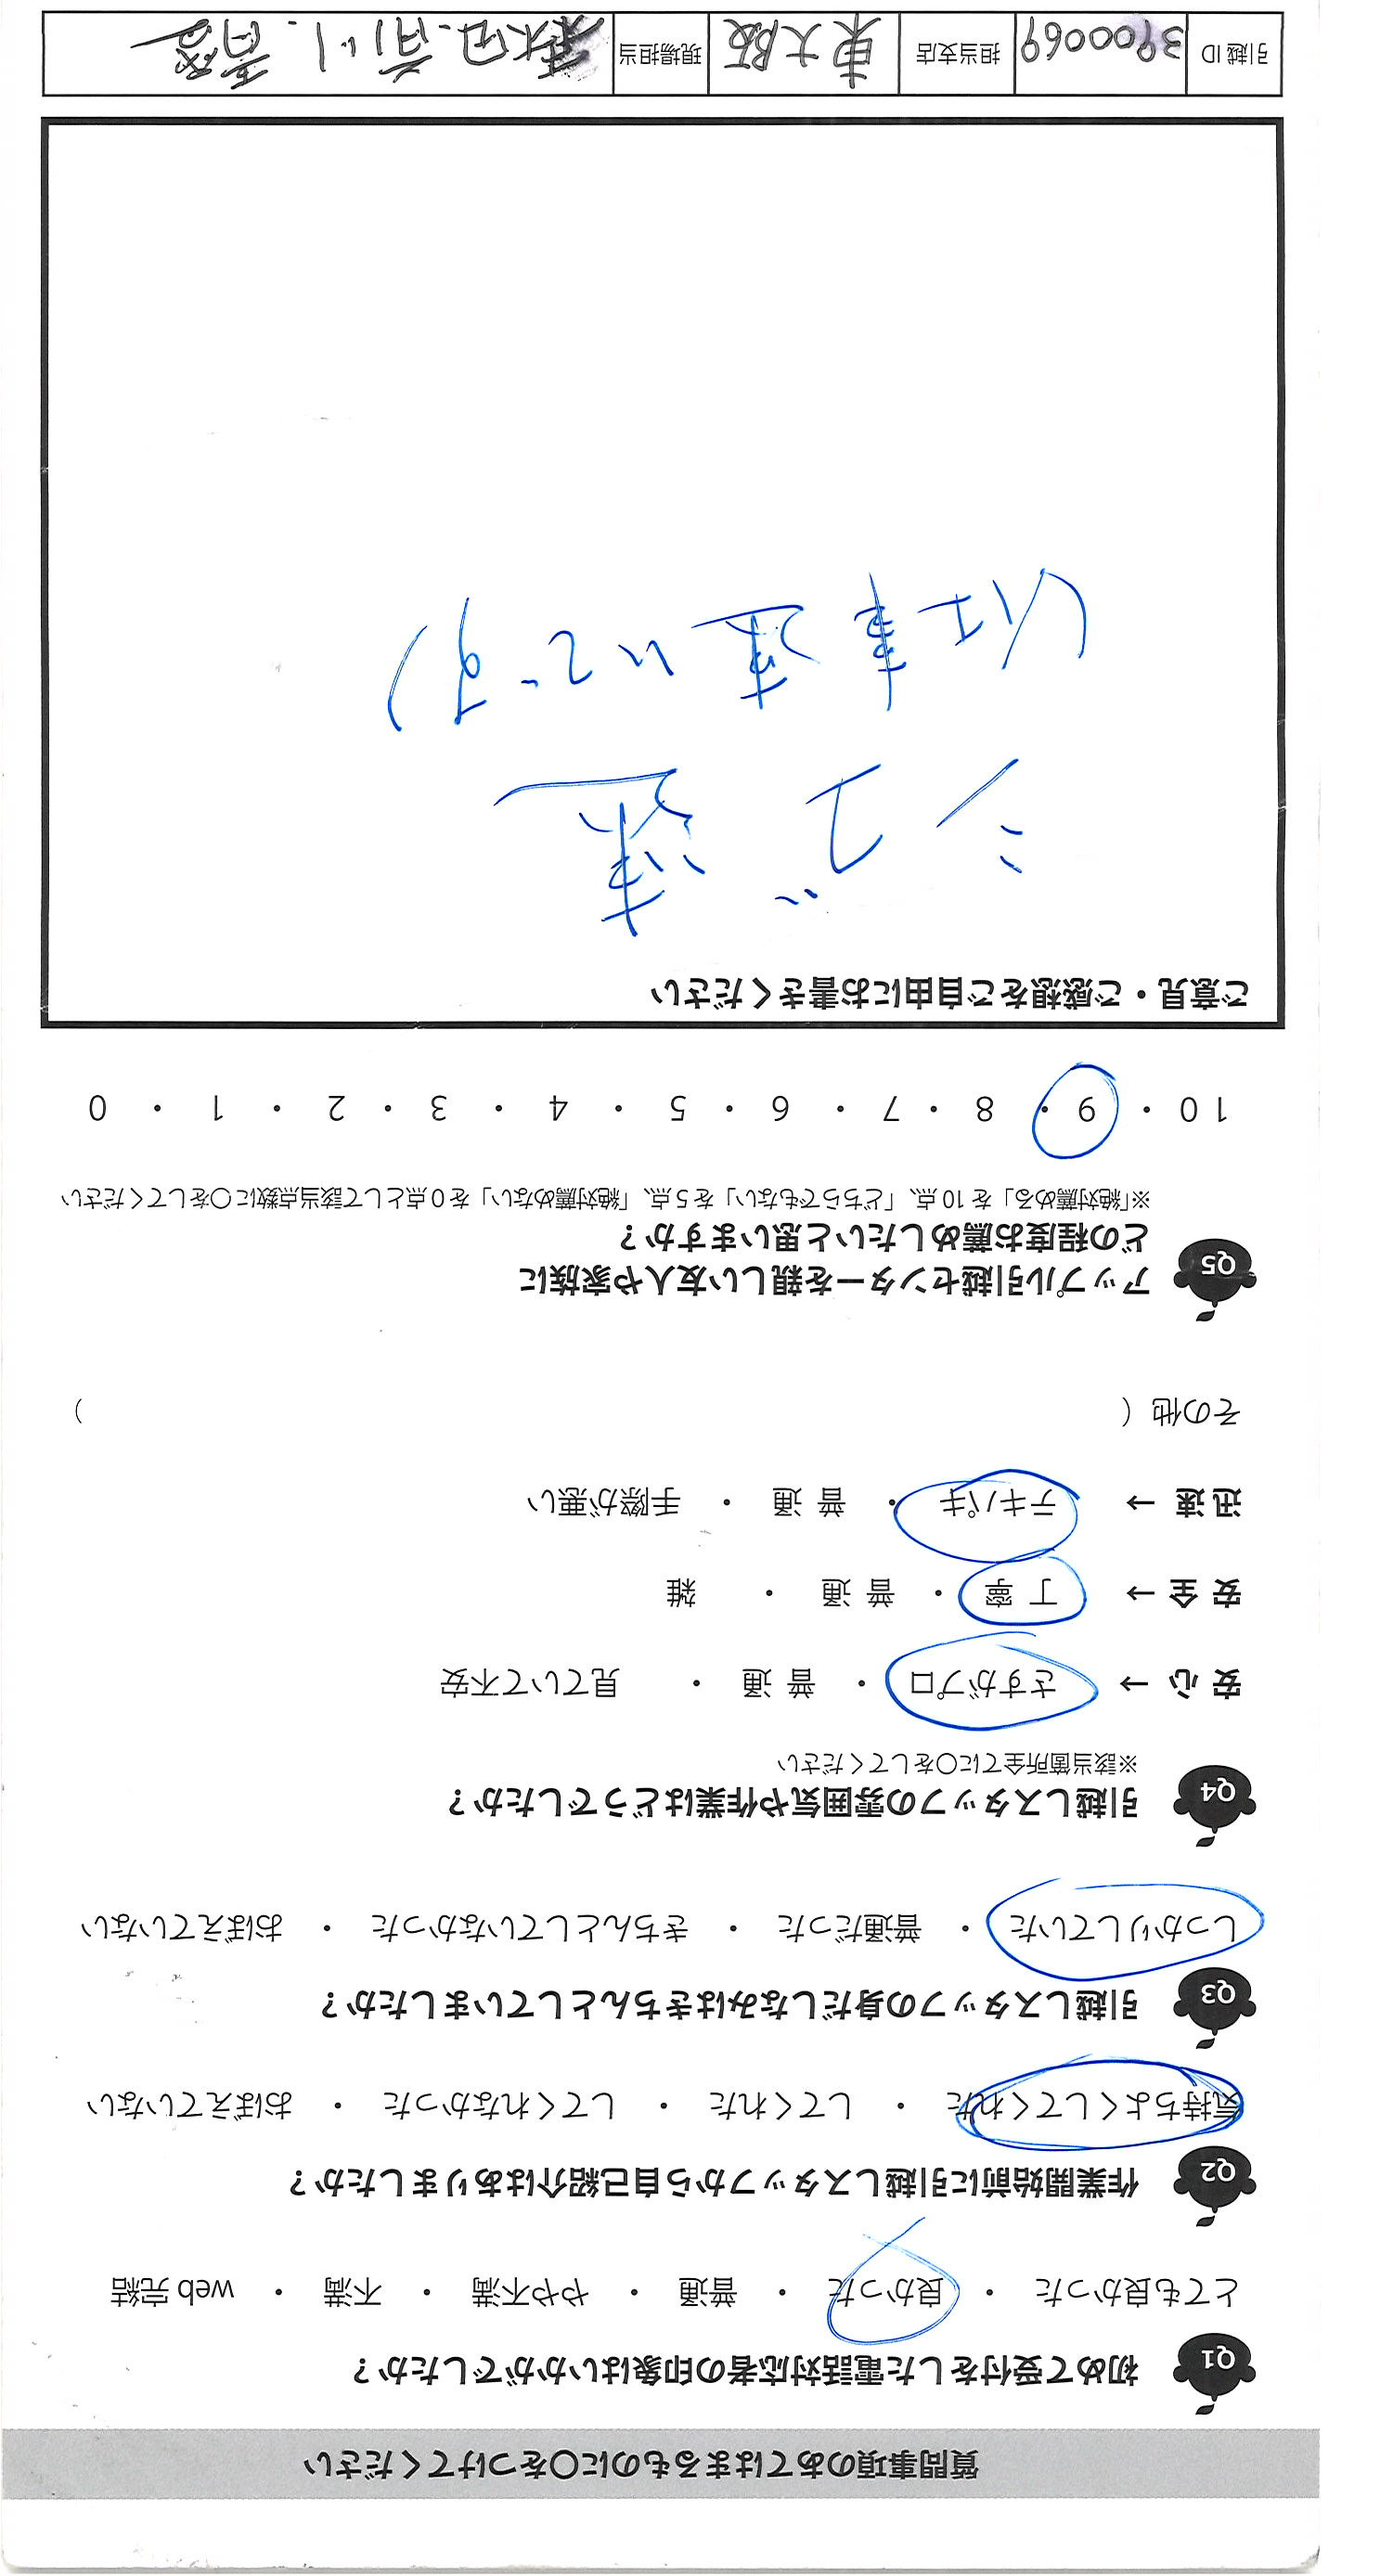 質問事項のあてはまるものに〇をつけてください
Q1 初めて受付をした電話対応者の印象はいかがでしたか？
とても良かった ・ 良かった ・ 普通 ・ やや不満 ・ 不満 ・ web 完結
Q2 作業開始前に引越しスタッフから自己紹介はありましたか？
気持ちよくしてくれた ・ してくれた ・ してくれなかった ・ おぼえていない
Q3 引越しスタッフの身だしなみはきちんとしていましたか？
しっかりしていた ・ 普通だった ・ きちんとしていなかった ・ おぼえていない
Q4 引越しスタッフの雰囲気や作業はどうでしたか？
※該当箇所全てに〇をしてください
安 心 → さすがプロ ・ 普 通 ・ 見ていて不安
安 全 → 丁 寧 ・ 普 通 ・ 雑
迅 速 → テキパキ ・ 普 通 ・ 手際が悪い
その他（ ）
Q5 アップル引越センターを親しい友人や家族に
どの程度お薦めしたいと思いますか？
※「絶対薦める」を 10 点、「どちらでもない」を 5 点、「絶対薦めない」を 0 点として該当点数に〇をしてください
10 ・ 9 ・ 8 ・ 7 ・ 6 ・ 5 ・ 4 ・ 3 ・ 2 ・ 1 ・ 0
ご意見・ご感想をご自由にお書きください
シゴ速
(仕事速いです)
引越 ID 3900069 担当支店 東大阪 現場担当